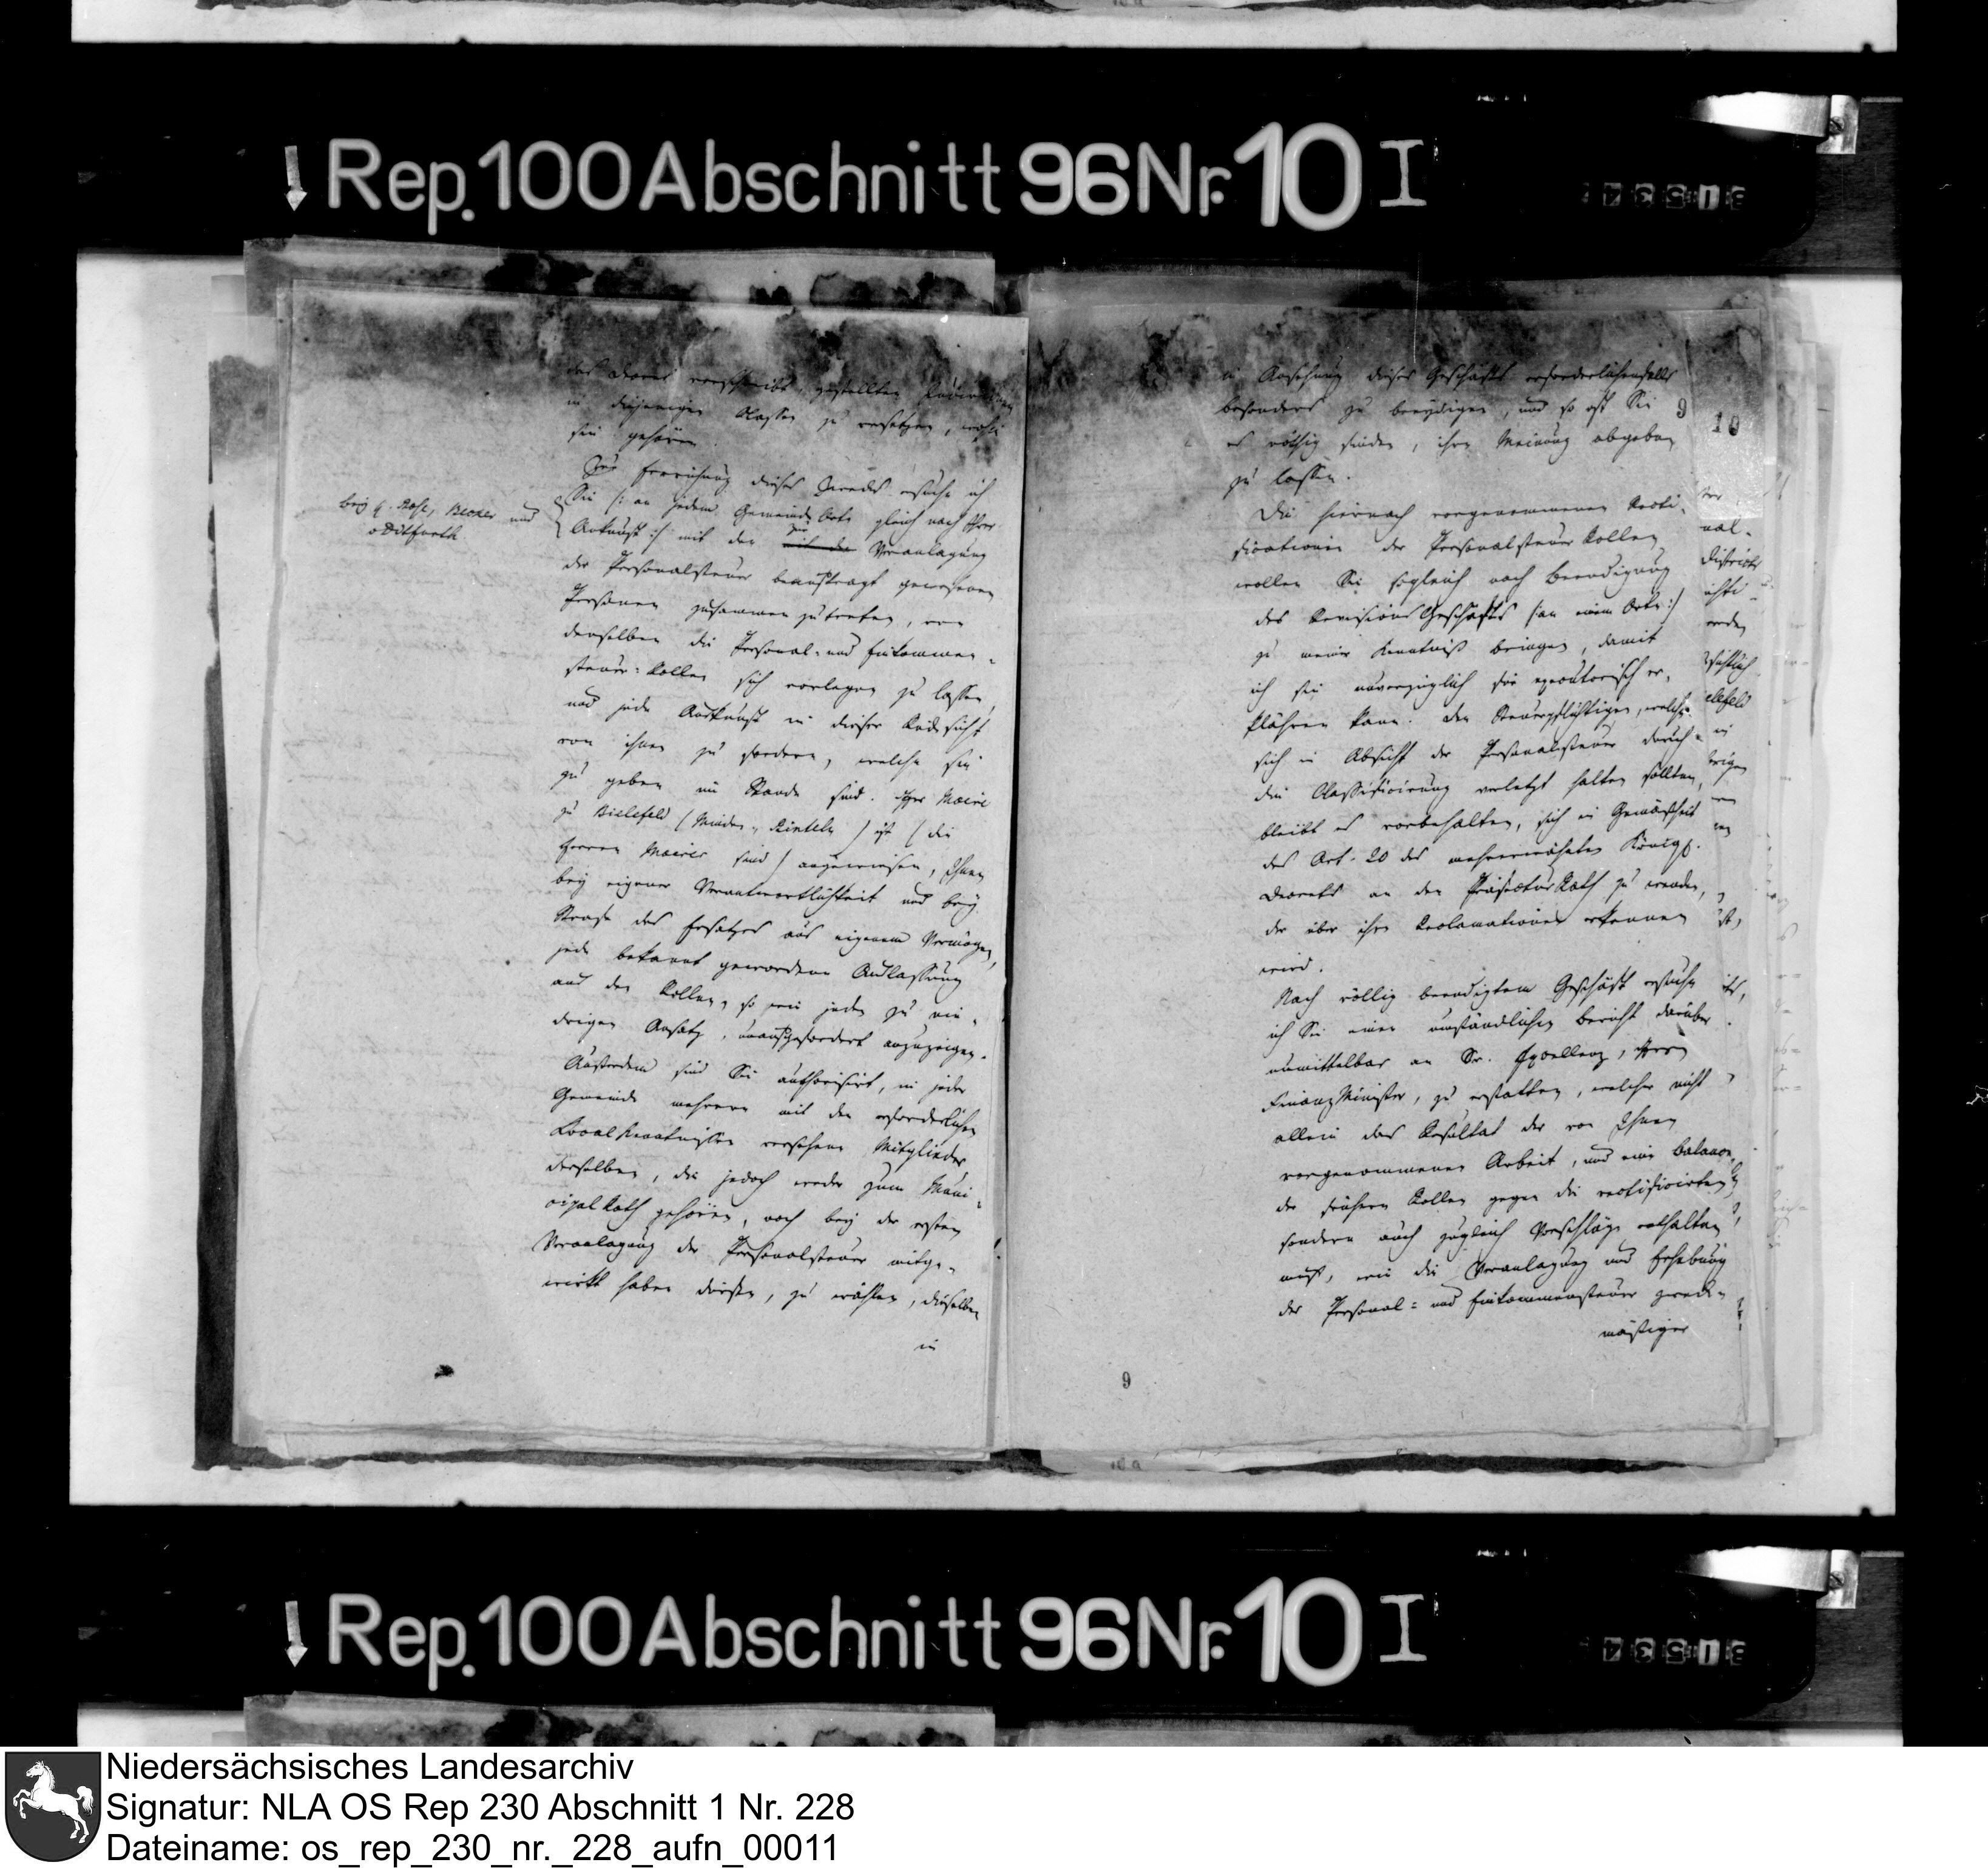 Rep. 100 Abschnitt 96 Nr. 10 I
31534
des Decrets vorschriftsmäßig gestellten Individuen
in diejenigen Classen zu versetzen, wohin
sie gehören.
Zur Erreichung dieses Zwecks ersuche ich
Sie /: an jedem Gemeinde Orte gleich nach Ihrer
Ankunft :/ mit den mit der zur Veranlagung
der Personalsteuer beauftragt gewesenen
Personen zusammen zu treten, von
denselben die Personal- und Einkommen-
steuer-Rollen sich vorlegen zu lassen,
und jede Auskunft in dieser Rücksicht
von ihnen zu fordern, welche sie
zu geben im Stande sind. Herr Maire
zu Bielefeld (Minden, Rinteln) ist (die
Herren Maires sind) angewiesen, Ihnen
bey eigener Verantwortlichkeit und bey
Strafe des Ersatzes aus eigenem Vermögen,
jede bekannt gewordene Auslassung
aus den Rollen, so wie jeden zu nie-
drigen Ansatz, unaufgefordert anzuzeigen.
Außerdem sind Sie authorisirt, in jeder
Gemeinde mehrere mit den erforderlichen
Local Kenntnissen versehene Mitglieder
derselben, die jedoch weder zum Muni-
cipal Rath gehören, noch bey der ersten
Veranlagung der Personalsteuer mitge-
wirkt haben dürfen, zu wählen, dieselben
in
bey H. Rose, Becker und
v Ditfurth
in Ansehung dieses Geschäfts erforderlichenfalls
besonders zu beeydigen, und so oft Sie
es nöthig finden, ihre Meinung abgeben
zu lassen.
Die hiernach vorgenommenen Recti-
ficationen der Personalsteuer Rollen
wollen Sie sogleich nach Beendigung
des Revisions Geschäfts /: an einem Orte :/
zu meiner Kenntniß bringen, damit
ich sie unverzüglich für executorisch er-
klähren kann. Den Steuerpflichtigen, welche
sich in Absicht der Personalsteuer durch
die Classificirung verletzt halten sollten,
bleibt es vorbehalten, sich in Gemäßheit
des Art. 20 des mehrerwähnten Königl.
Decrets an den Präfectur Rath zu wenden,
der über ihre Reclamationen erkennen
wird.
Nach völlig beendigtem Geschäft ersuche
ich Sie einen umständlichen Bericht darüber
unmittelbar an Sr. Excellenz, Herrn
Finanz Minister, zu erstatten, welcher nicht
allein das Resultat der von Ihnen
vorgenommenen Arbeit, und eine Balance
der frühern Rollen gegen die rectificirten
sondern auch zugleich Vorschläge enthalten
muß, wie die Veranlagung und Erhebung
der Personal- und Einkommensteuer zweck-
mäßiger
9
10
9
Rep. 100 Abschnitt 96 Nr. 10 I
31534
Niedersächsisches Landesarchiv
Signatur: NLA OS Rep 230 Abschnitt 1 Nr. 228
Dateiname: os_rep_230_nr._228_aufn_00011